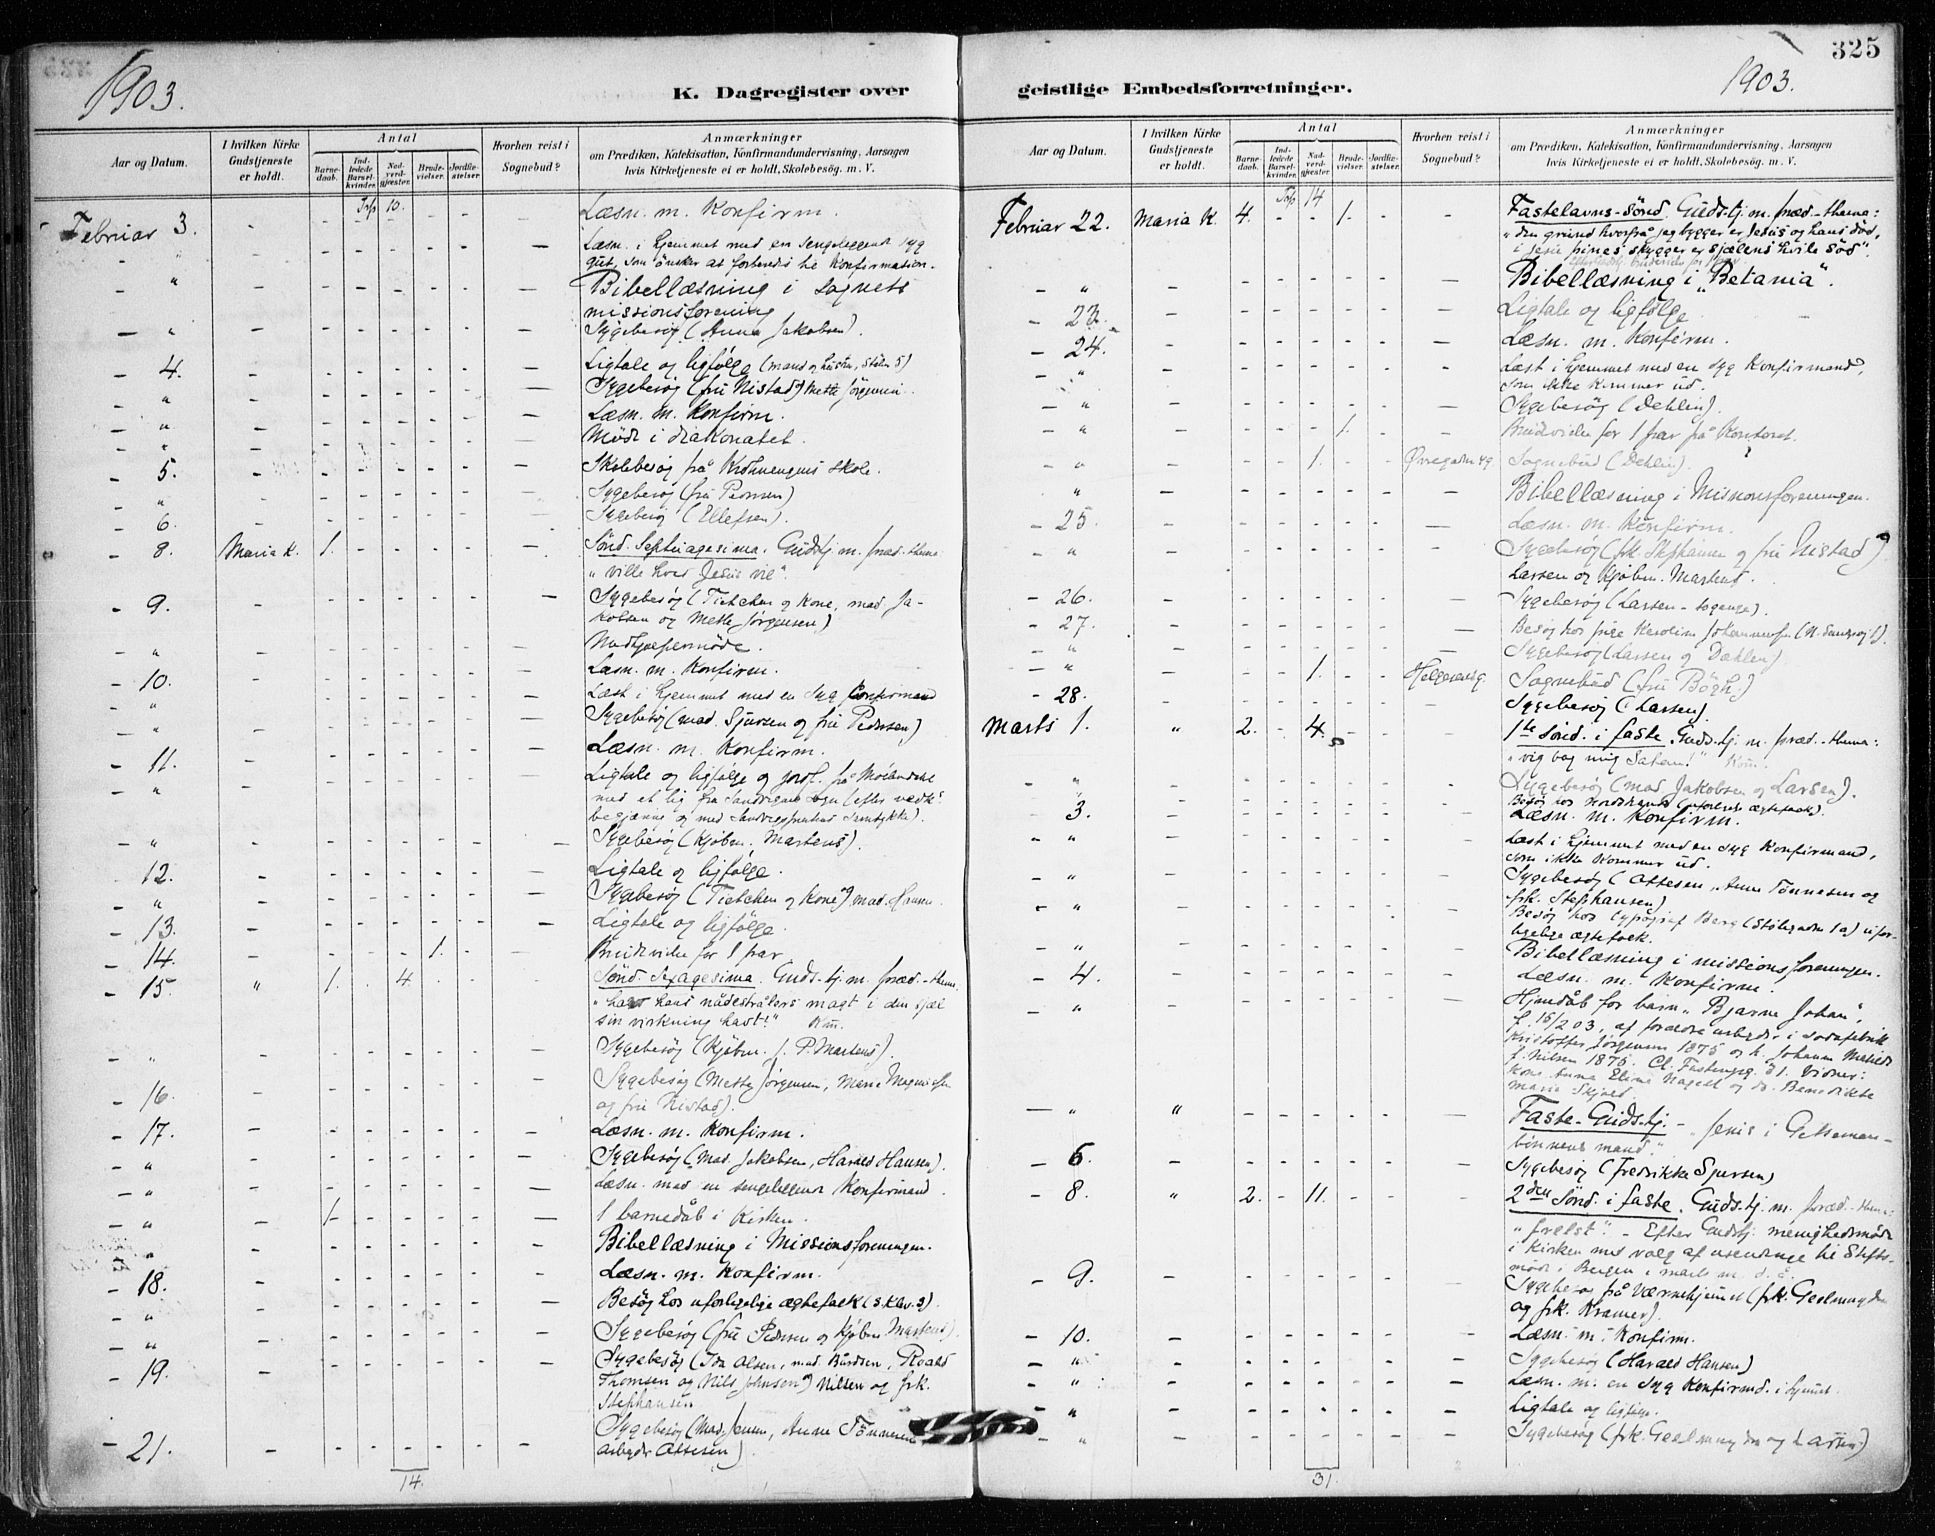 325
1903.
K. Dagregister over
Aar og Datum.
I hvilken Kirke Gudstjeneste er holdt.
Antal
Barne-daab.
Ind-ledede Barsel-kvinder.
Nad-verd-gjæster.
Brude-vielser.
Jordfæ-stelser.
Hvorhen reist i Sognebud?
Anmærkninger
om Prædiken, Katekisation, Konfirmandundervisning, Aarsagen
hvis Kirketjeneste ei er holdt, Skolebesøg. m. V.
Trsp 10.
Februar 3. Læsn. m. Konfirm.
" Læsn. i hjemmet med en sengeliggende syg
gut, som ønsker at forberedes til Konfirmation.
" Bibellæsning i sognets
missionsforening
" Sygebesøg (Anna Jakobsen).
4. Ligtale og ligfølge
" Sygebesøg (fru Nistad) Mette Jörgensen
" Læsn. m. Konfirm.
" Møde i diakonatet.
5. Skolebesøg på Krohnengens skole.
" Sygebesøg
6. Sygebesøg (Ellefsen).
8. Maria K. 1. Sönd. Septuagesima. Gudstj. m. præd. thema
"ville hvad Jesus vil".
9. Sygebesøg (Tietchen og Kone, mad. Ja-
kobsen og Mette Jörgensen)
" Medhjælpermøde.
10. Læsn. m. Konfirm.
" Læst i hjemmet med en syg Confirmand
" Sygebesøg (mad. Sjursen og fru Pedersen)
11. Læsn. m. Konfirm.
" Ligtale og ligfølge og jordf. på Møllendal
med et lig fra Sandvigens sogn
" Sygebesøg (Kjøbm. Martens).
12. Ligtale og ligfølge.
" Sygebesøg (Tietchen og Kone) mad. Hansen.
13. Ligtale og ligfølge.
14. 1. Brudevielse for 1 par
15. " 1. 4 Sönd. Sexagesima. Guds-tj. m. præd.-thema
"har hans nådestrålers magt i den sjæl
sin virkning havt?" Km.
" Sygebesøg (Kjøbm. J. P. Martens).
16. Sygebesøg (Mette Jörgensen, Marie Magnussen
og fru Nistad).
17. Læsn. m. Konfirm.
" Sygebesøg (Mad. Jakobsen, Harald Hansen).
" Læsn. med en sengeliggende Konfirmand.
" 1 1 barnedåb i Kirken.
" Bibellæsning i Missionsforeningen.
18. Læsn. m. Konfirm.
" Besøg hos uforligelige ægtefolk
" Sygebesøg (fru Pedersen og Kjøbm Martens).
19. Sygebesøg (Ida Olsen, mad. Bårdsen, Roald
Thomsen og Nils Johnsen) Nilsen og frk.
Stephansen
21. Sygebesøg (Mad. Jensen, Anne Tönnesen
arbeider Ottesen)
14.
1903.
geistlige Embedsforretninger.
Aar og Datum.
I hvilken Kirke Gudstjeneste er holdt.
Antal
Barne-daab.
Ind-ledede Barsel-kvinder.
Nad-verd-gjæster.
Brude-vielser.
Jordfæ-stelser.
Hvorhen reist i Sognebud?
Anmærkninger
om Prædiken, Katekisation, Konfirmandundervisning, Aarsagen
hvis Kirketjeneste ei er holdt, Skolebesøg. m. V.
Trsp 14
Februar 22. Maria K. 4. 1. Fastelavns-Sönd. Guds-tj. m. præd.-thema:
"den grund hvorpå jeg bygger er Jesus og hans død,
i Jesu pines skygger er sjælens hvile sød".
" Bibellæsning i "Betania".
23. Ligtale og ligfølge
24. Læsn. m. Konfirm.
" Læst i hjemmet med en syg Konfirmand,
som ikke kommer ud.
" Sygebesøg (Dehlin).
" 1. Brudevielse for 1 par på Kontoret.
" 1. Øvregaden 49. Sognebud (Dehlin).
" Bibellæsning i Missionsforeningen.
25. Læsn. m. Konfirm.
" Sygebesøg (frk. Stephansen og fru Nistad)
Larsen og Kjøbm. Martens.
26. Sygebesøg
27. Besøg hos pige Karoline
" Sygebesøg (Larsen og Dæhlen)
" 1. Sognebud (fru Bøgh.)
28. Sygebesøg (Larsen)
Marts 1. " 2. 4. 1te Sönd. i faste. Guds-tj. m. præd.-thema:
"vig bag mig Satan!" Kom.
" Sygebesøg (mad Jakobsen og Larsen).
Besøg hos
3. Læsn. m. Konfirm.
" Læst i hjemmet med en syg Konfirmand,
som ikke kommer ud.
" Sygebesøg (Ottesen, Anne Tönnesen og
frk. Stephansen)
" Besøg hos typograf Berg (Stölegaden 1a) ufor-
ligelige ægtefolk.
" Bibellæsning i missionsforeningen.
4. Læsn. m. Konfirm.
" Hjemdåb for barn "Bjarne Johan",
f. 16/2 03, af forældre arbeider i sodafabrik
Kristoffer Jörgensen 1875 og h. Johanna Mathilde
f. Nilsen 1875.
Kone Anna Eline Nagell og do. Benedikte
Maria Skjold.
" " Faste-Guds-tj. - Jesus i Getseman-
6. Sygebesøg (Fredrikke Sjursen)
8. " 2. 11. 2den Sönd. i faste. Guds-tj. m. præd.-thema:
"frelst". - Efter Gudstj. menighedsmøde
i Kirken med valg af utsendinge til Stifts-
møde i Bergen i marts m. d. å.
9. Sygebesøg på Værnehjemmet (frk. Geelmuyden
og frk. Kramer).
10. Læsn. m. Konfirm.
" Sygebesøg (Harald Hansen)
" Læsn. m. en syg Konfirmd. i hjemmet.
" Ligtale og ligfølge.
" Sygebesøg (frk. Geelmuyden og Larsen)
31.